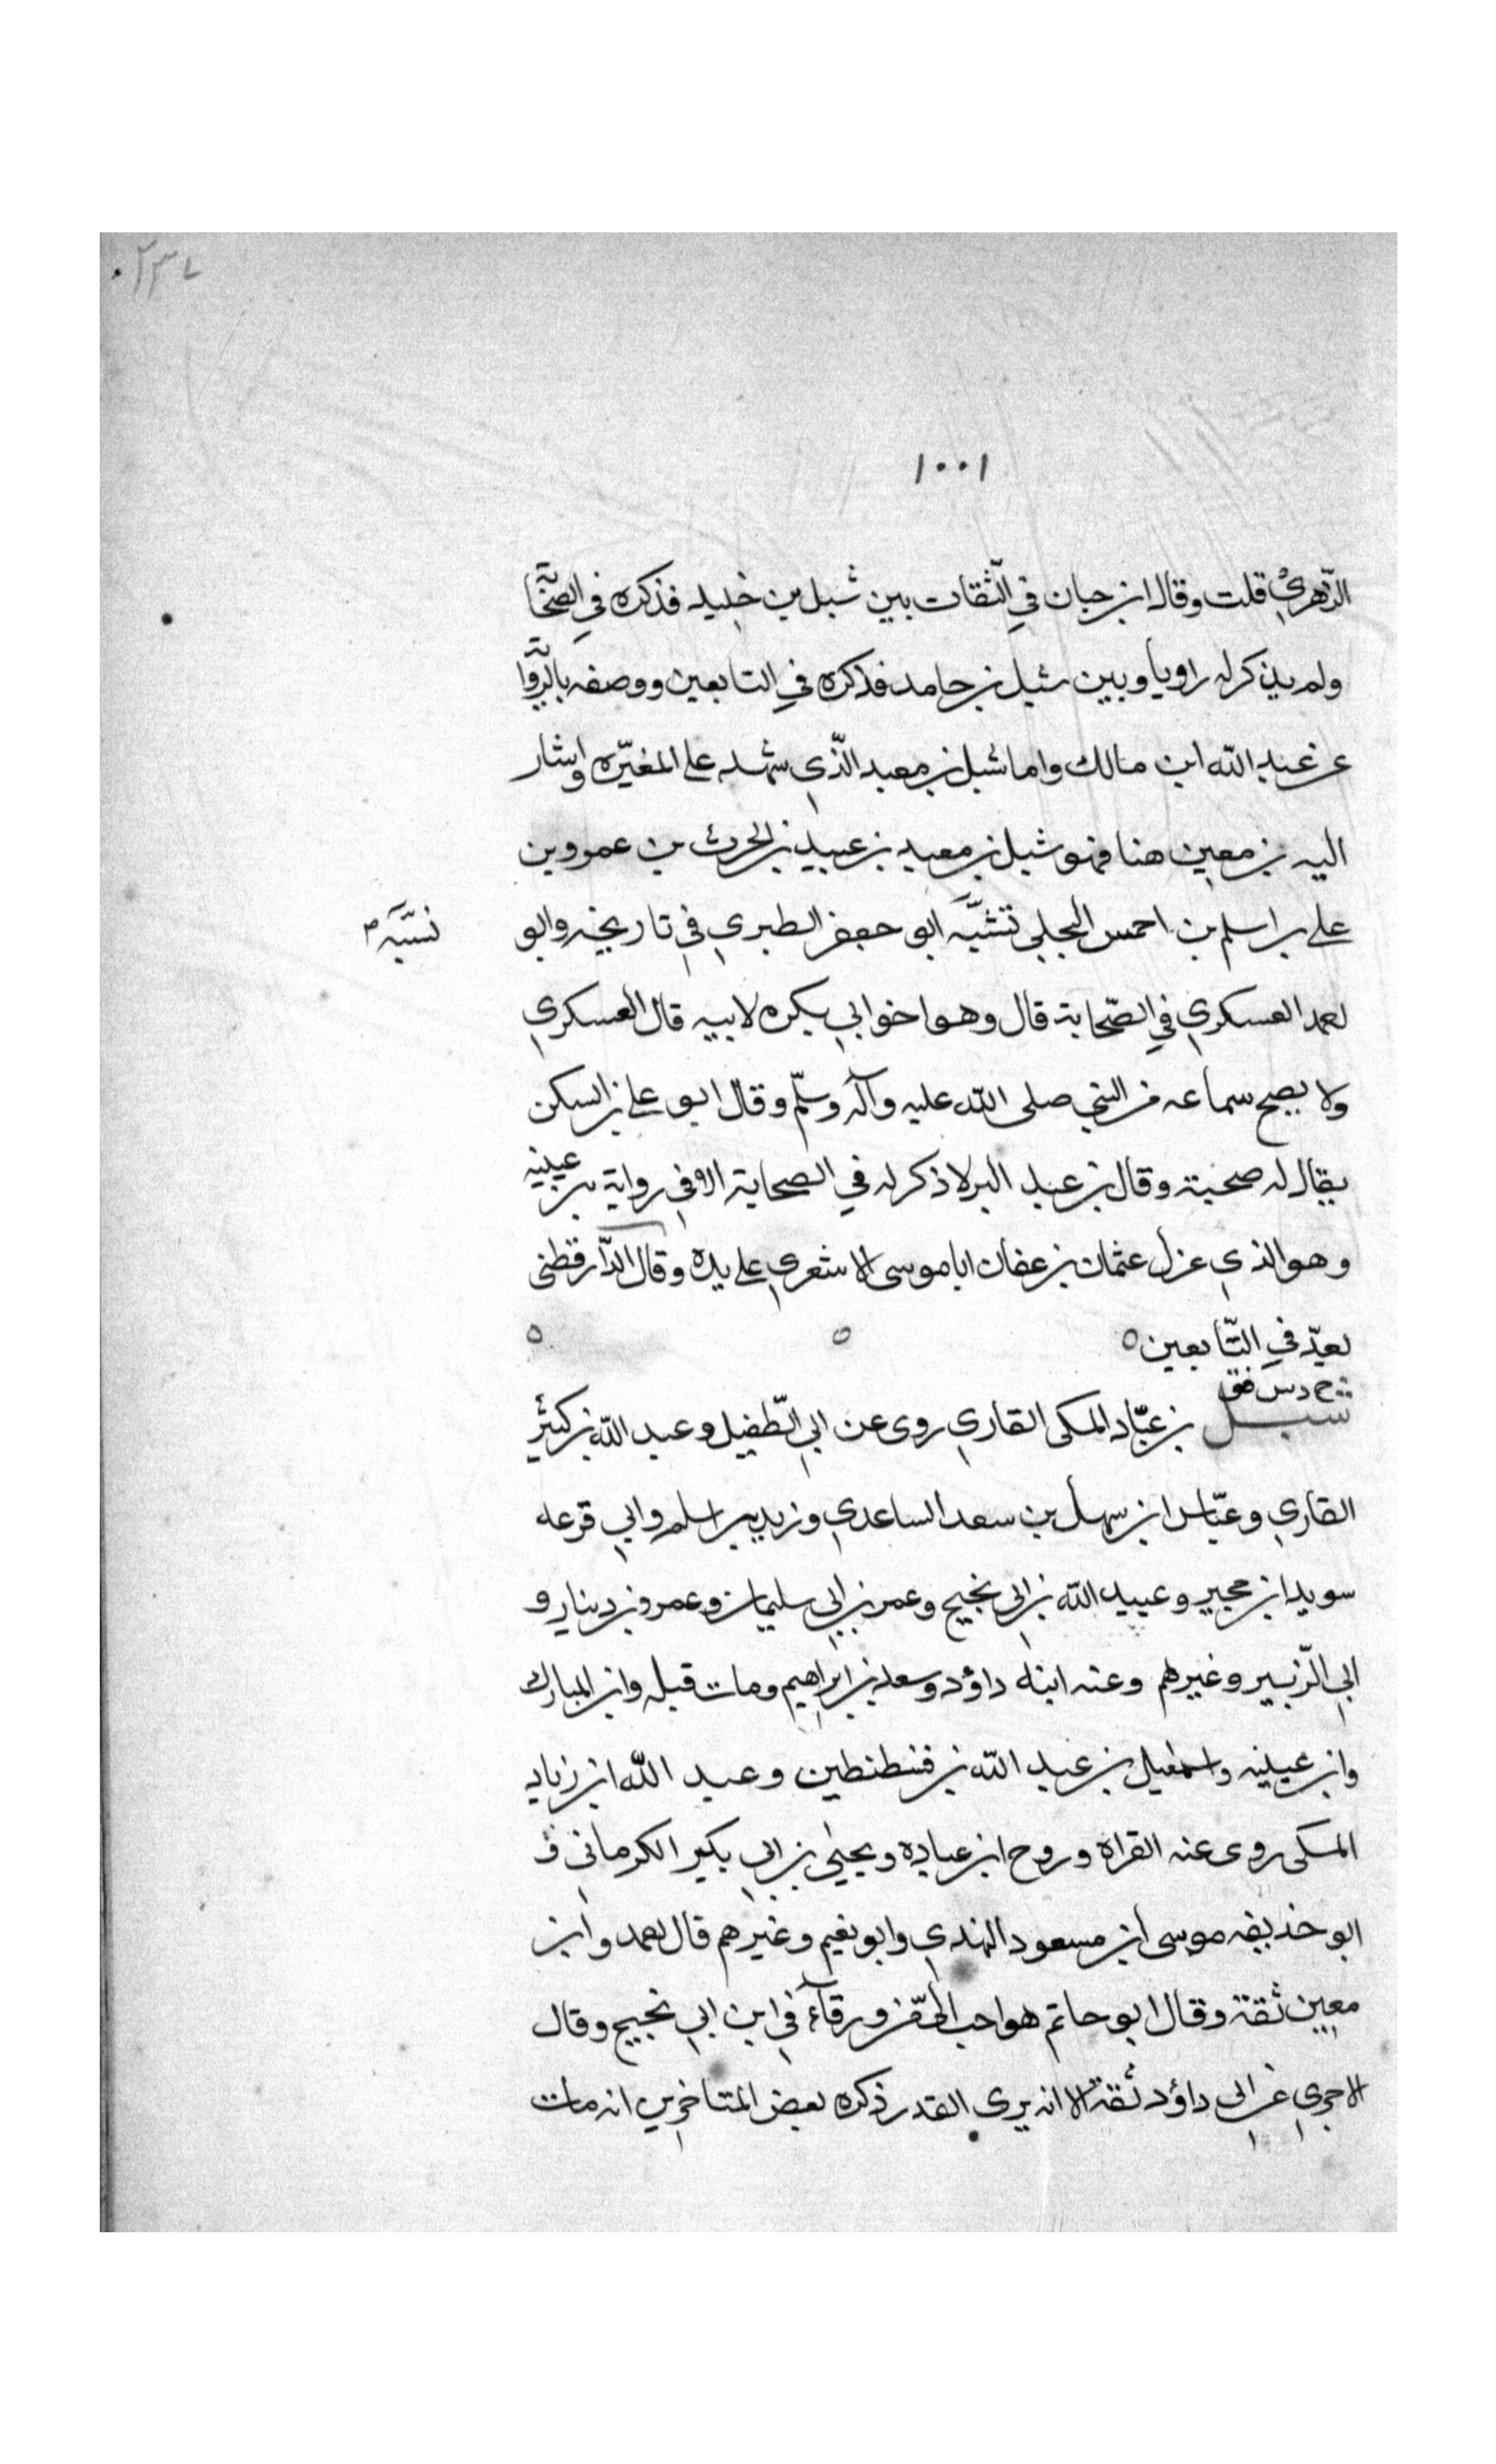 ١٠٠١
الزّهريّ قلت وقال ابن حبان في الثّقات بين شبل بن خليد فذكره في الصّحا
ولم يذكر له راويا وبين شبل بن حامد فذكره في التابعين ووصفه بالرّوا
عن عبد الله ابن مالك واما شبل بن معبد الّذي شهد على المغيّره واشار
اليه بن معين هنا فهو شبل بن معبد بن عبيد بن الحرث بن عمرو بن
على بن اسلم بن احمس البجلي ابو جعفر الطبري في تاريخه وابو
نسبّه
العسكري في الصّحابة قال وهو اخو ابي بكره لابيه قال العسكري
ولا يصح سماعه من النبي صلى الله عليه وآله وسلّم وقال ابو على بن السكن
يقال له صحبة وقال بن عبد البر لا ذكر له في الصحابة الا في رواية بن عيينه
وهو الذي عزل عثمان بن عفان ابا موسى الاشعري على يده وقال الدّارقطنى
يعدّ في التّابعين ه ه ه
خ د س فق
شبل بن عبّاد المكى القاري روى عن ابي الطّفيل وعبد الله بن كثير
القاري وعبّاس ابن سهل بن سعد الساعدي وزيد بن اسلم وابي قزعه
سويد ابن حجير وعبيد الله بن ابى نجيح وعمر بن ابي سليمان وعمرو بن دينار و
ابي الزّبير وغيرهم وعنه ابنه داؤد وسعد بن ابراهيم ومات قبله وابن المبارك
وابن عيينه واسمعيل بن عبد الله بن قسطنطين وعبد الله ابن زياد
المكى روى عنه القراة وروح ابن عباده ويحيى بن ابي بكير الكرمانى و
ابو حذيفه موسى ابن مسعود النهدي وابو نعيم وغيرهم قال احمد وابن
معين ثقة وقال ابو حاتم هو احب الىّ من ورقآء في ابن ابي نجيح وقال
الاجري عن ابى داؤد ثقة الا انه يرى القدر ذكره بعض المتاخرين انه مات